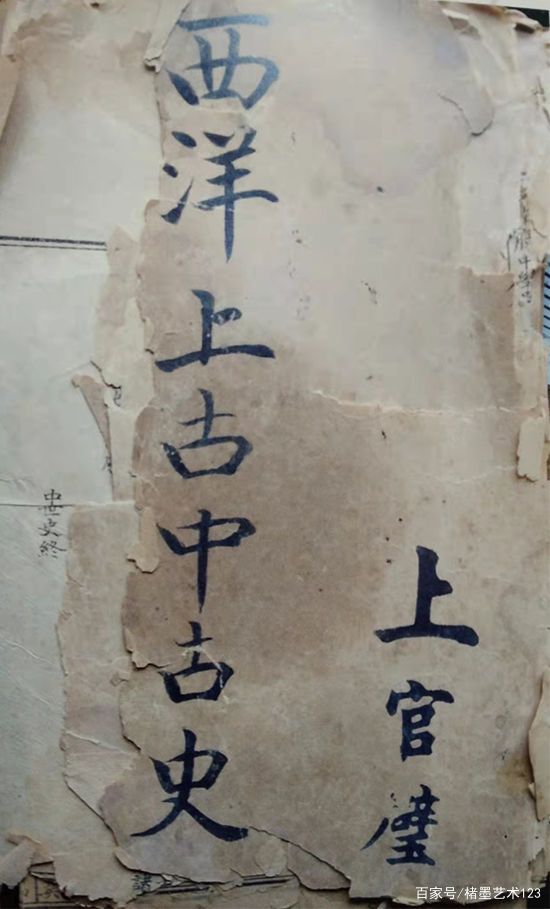 西洋上古中古史
上官璧
中世史終
百家号/楮墨艺术123